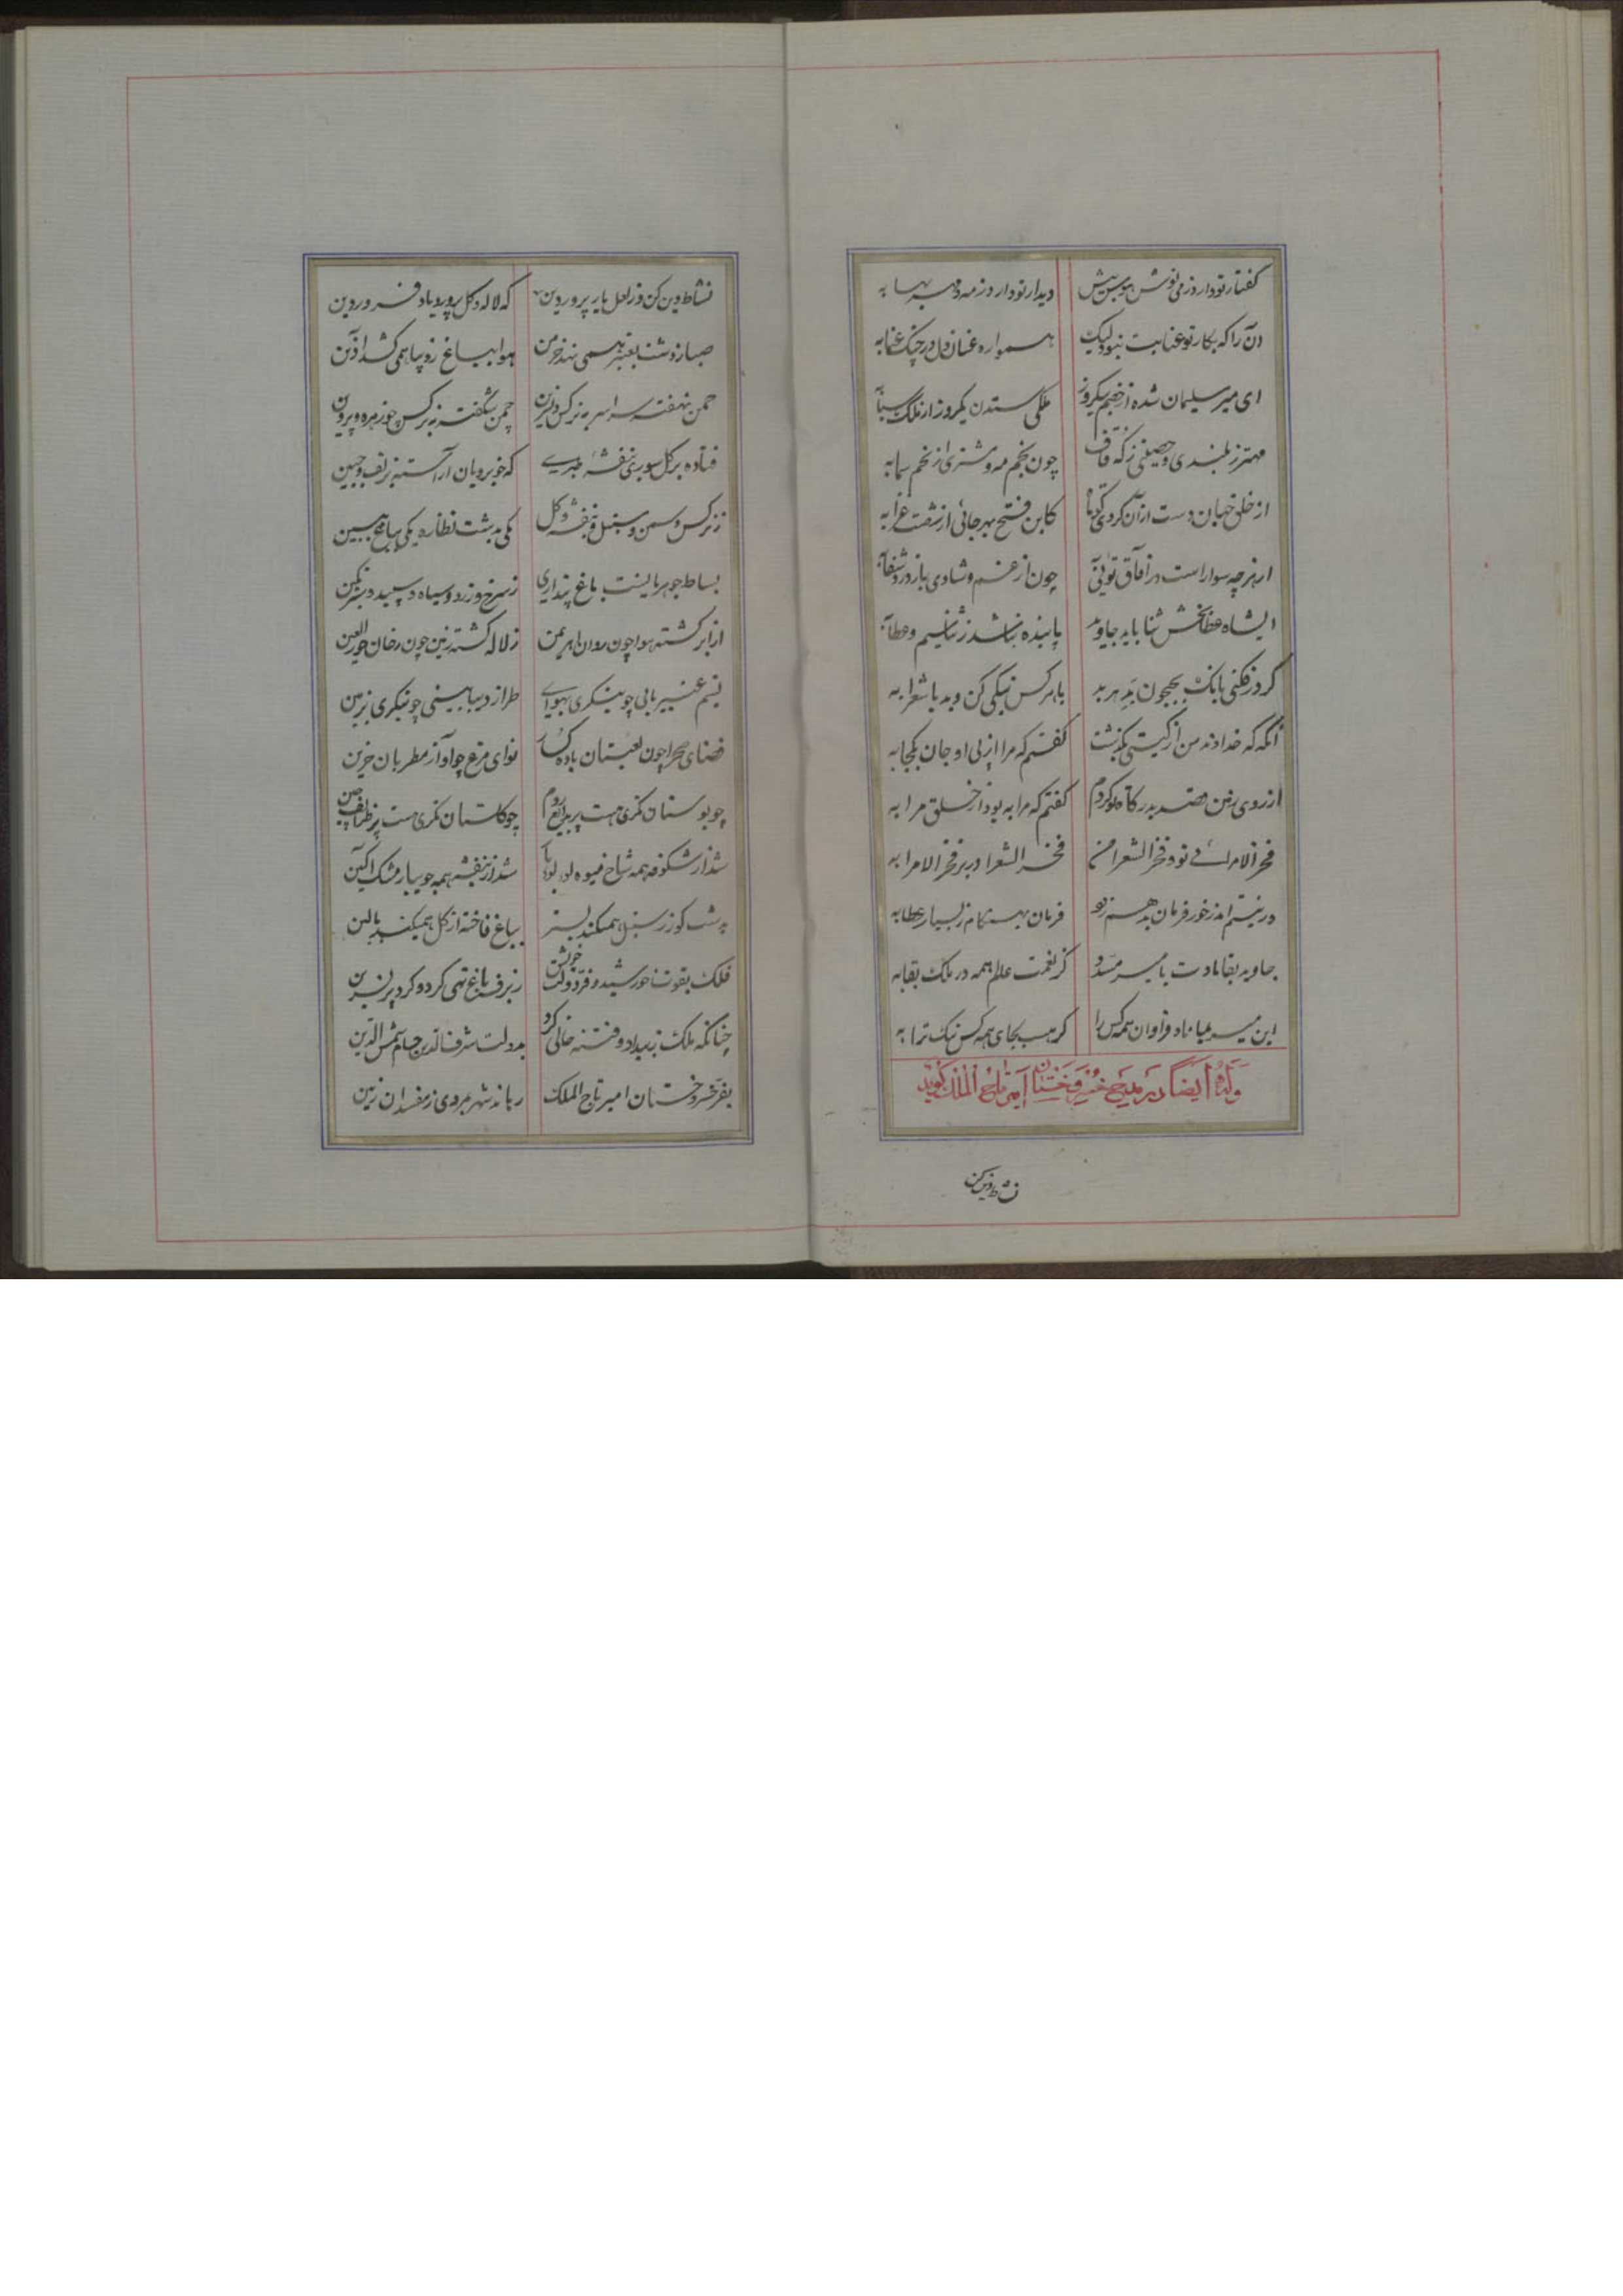 گفتار تو دارد ز می نوش بسی بیش دیدار تو دارد ز مه و مهر بها به
وآن را که بکار تو عنایت نبود لیک همواره عنان دل در چنگ عنا به
ای میر سلیمان شده از خصم بیکروز ملکی ستدن یکروز از ملک سبا به
مهتر ز بلندی و حصینی ز که قاف چون نجم مه و مشتری از نجم سما به
از خلق جهان دست از آن کردی کوتاه کاین فتح بهر جائی از شصت غزا به
از هرچه سوار است در آفاق توئی چون از غم و شادی باز درد شفا به
ایشاه عطا بخش ثنا باید جاوید پاینده نباشد ز ثنا سیم و عطا به
گر وز فکنی بانک بجیحون بد هر بد با هر کس نیکی کن و بد با شعرا به
آنگه که خداوند من از گیتی بگذشت گفتم که مرا از پی او جان بکجا به
از روی زمین قصد بدرگاه تو کردم گفتم که مرا به بود از خلق مرا به
فخر الامرائی تو و فخر الشعرا من فخر الشعرا در بر فخر الامرا به
در نیستم اندر خور فرمان بدهم زود فرمان بهنگام ز بسیار عطا به
جاوید بقا بادت با میر مسدد کز نعمت عالم همه در ملک بقا به
این میر بماناد فراوان همه کس را کز هست بجای همه کس نیک ترا به
وله ایضا در مدیح خسرو خستان امیر تاج الملک گوید
نشاط وین کن
نشاط دین کن وز لعل یار پروردین که لاله و گل پرورد باد فروردین
صبا ز دشت بعنبر همی نهد خرمن هوا بباغ ز دیبا همی گشد آذین
چمن نهفته سراسر به نرگس و نسرین چمن شگفته ز نرگس چو زهره و پروین
فتاده بر گل سوری بنفشه طبری که خوبرویان آراسته بزلف و جبین
ز نرگس و سمن و سنبل و بنفشه و گل یکی بدشت نظاره یکی بباغ ببین
بساط جوهریانست باغ پنداری ز سرخ و زرد و سیاه و سپید و سبز نگین
از ابر گشته هوا چون روان اهریمن ز لاله گشته زمین چون رخان حورالعین
نسیم عنبر یابی چو بنگری بهوای طراز دیبا بینی چو بنگری بزمین
فضای صحرا چون لعبتان باده گسار نوای مرغ چو آواز مطربان حزین
چو بوستان نگری هست پر بدایع روم چو گلستان نگری هست پر ظرایف چین
شد از شکوفه همه شاخ میوه لولو بار شد از بنفشه همه جویبار مشک آگین
بدشت گوزن ز سنبل همیکند بستر بباغ فاخته از گل همیکند بالین
فلک بقوت خورشید و فر دولت خویش ز برف باغ تهی کرد و کرد پر نسرین
چنانکه ملک ز بیداد و فتنه خالی کرد بدولت شرف الدین حسام شمس الدین
بفر خسرو خستان امیر تاج الملک رباند شهر بمردی ز مفسدان زمین